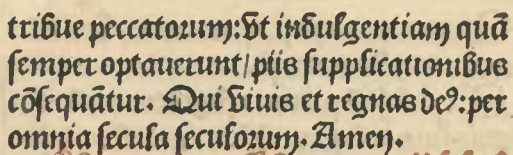 tribue peccatoꝛum: vt indulgentiam quã
ſemper optauerunt/ piis ſupplicationibus
cõſequãtur. Qui viuis et regnas deꝰ: per
omnia ſecula ſeculoꝛum. Amen.